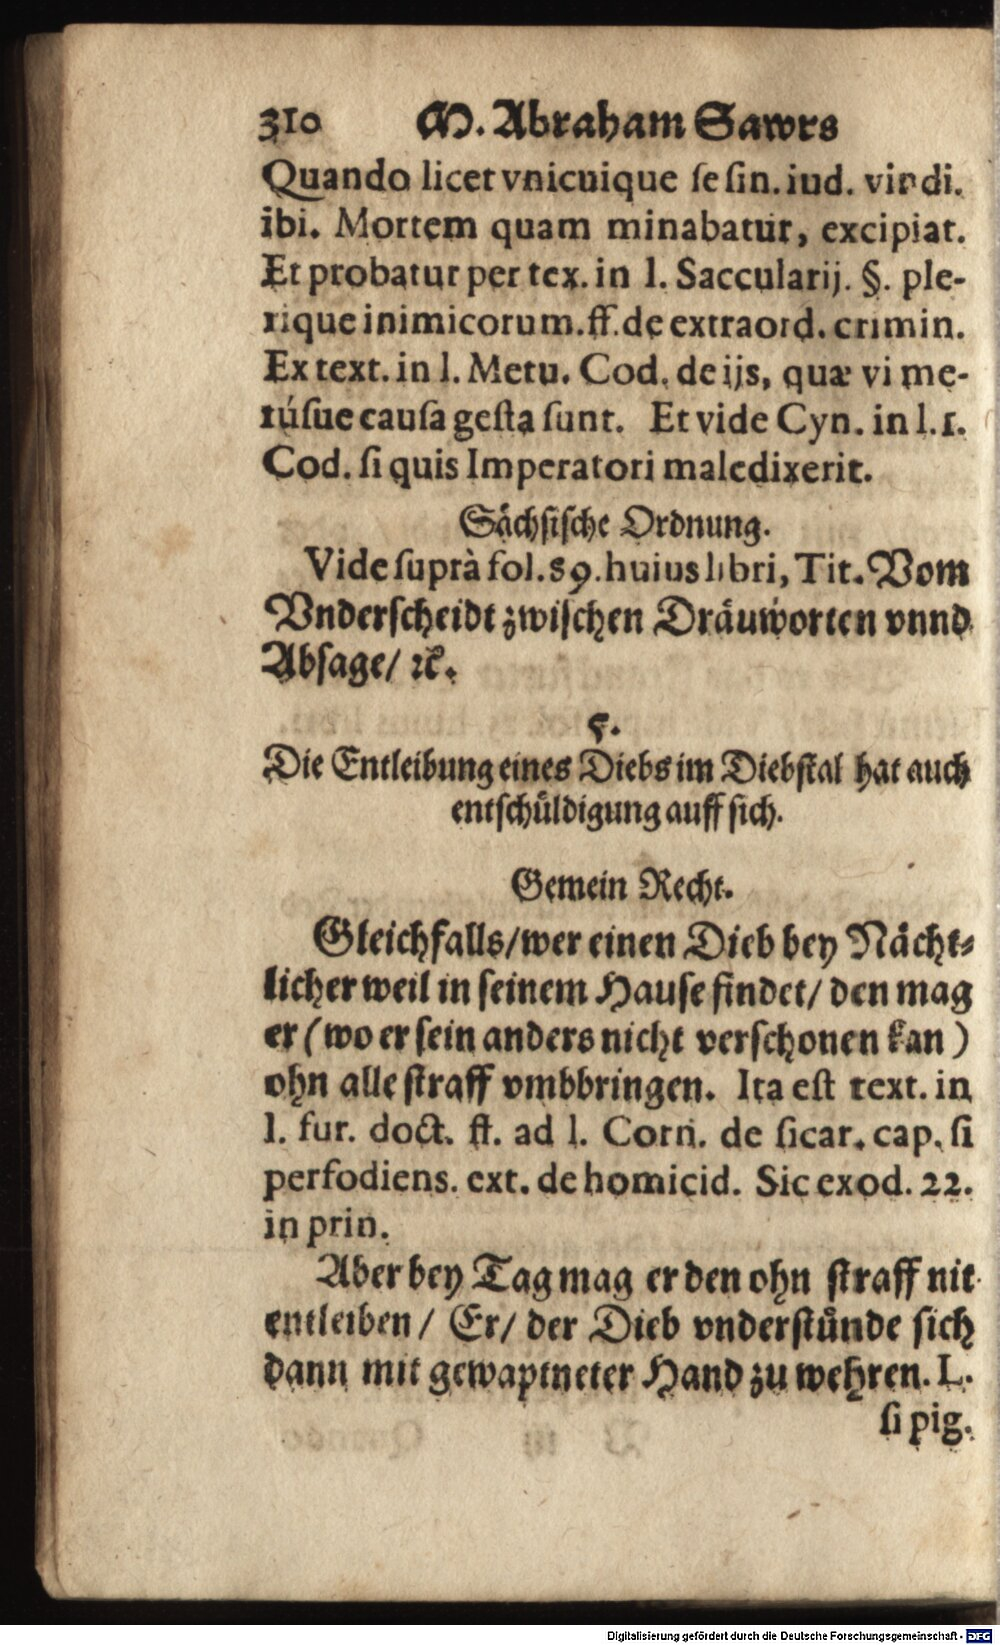 310 M. Abraham Sawrs
Quando licet vnicuique ſe ſin. iud. vindi.
ibi. Mortem quam minabatur, excipiat.
Et probatur per tex. in l. Saccularij. §. ple-
rique inimicorum. ff. de extraord. crimin.
Ex text. in l. Metu. Cod. de ijs, quæ vi me-
túſue cauſa geſta ſunt. Et vide Cyn. in l. 1.
Cod. ſi quis Imperatori maledixerit.
Sächſiſche Ordnung.
Vide ſuprà fol. 89. huius libri, Tit. Vom
Vnderſcheidt zwiſchen Dräuworten vnnd
Abſage/ ꝛc.
5.
Die Entleibung eines Diebs im Diebſtal hat auch
entſchüldigung auff ſich.
Gemein Recht.
Gleichfalls/ wer einen Dieb bey Nächt⸗
licher weil in ſeinem Hauſe findet/ den mag
er (wo er ſein anders nicht verſchonen kan)
ohn alle ſtraff vmbbringen. Ita eſt text. in
l. fur. doct. ff. ad l. Corn. de ſicar. cap. ſi
perfodiens. ext. de homicid. Sic exod. 22.
in prin.
Aber bey Tag mag er den ohn ſtraff nit
entleiben/ Er/ der Dieb vnderſtünde ſich
dann mit gewaptneter Hand zu wehren. L.
ſi pig.
Digitalisierung gefördert durch die Deutsche Forschungsgemeinschaft - DFG